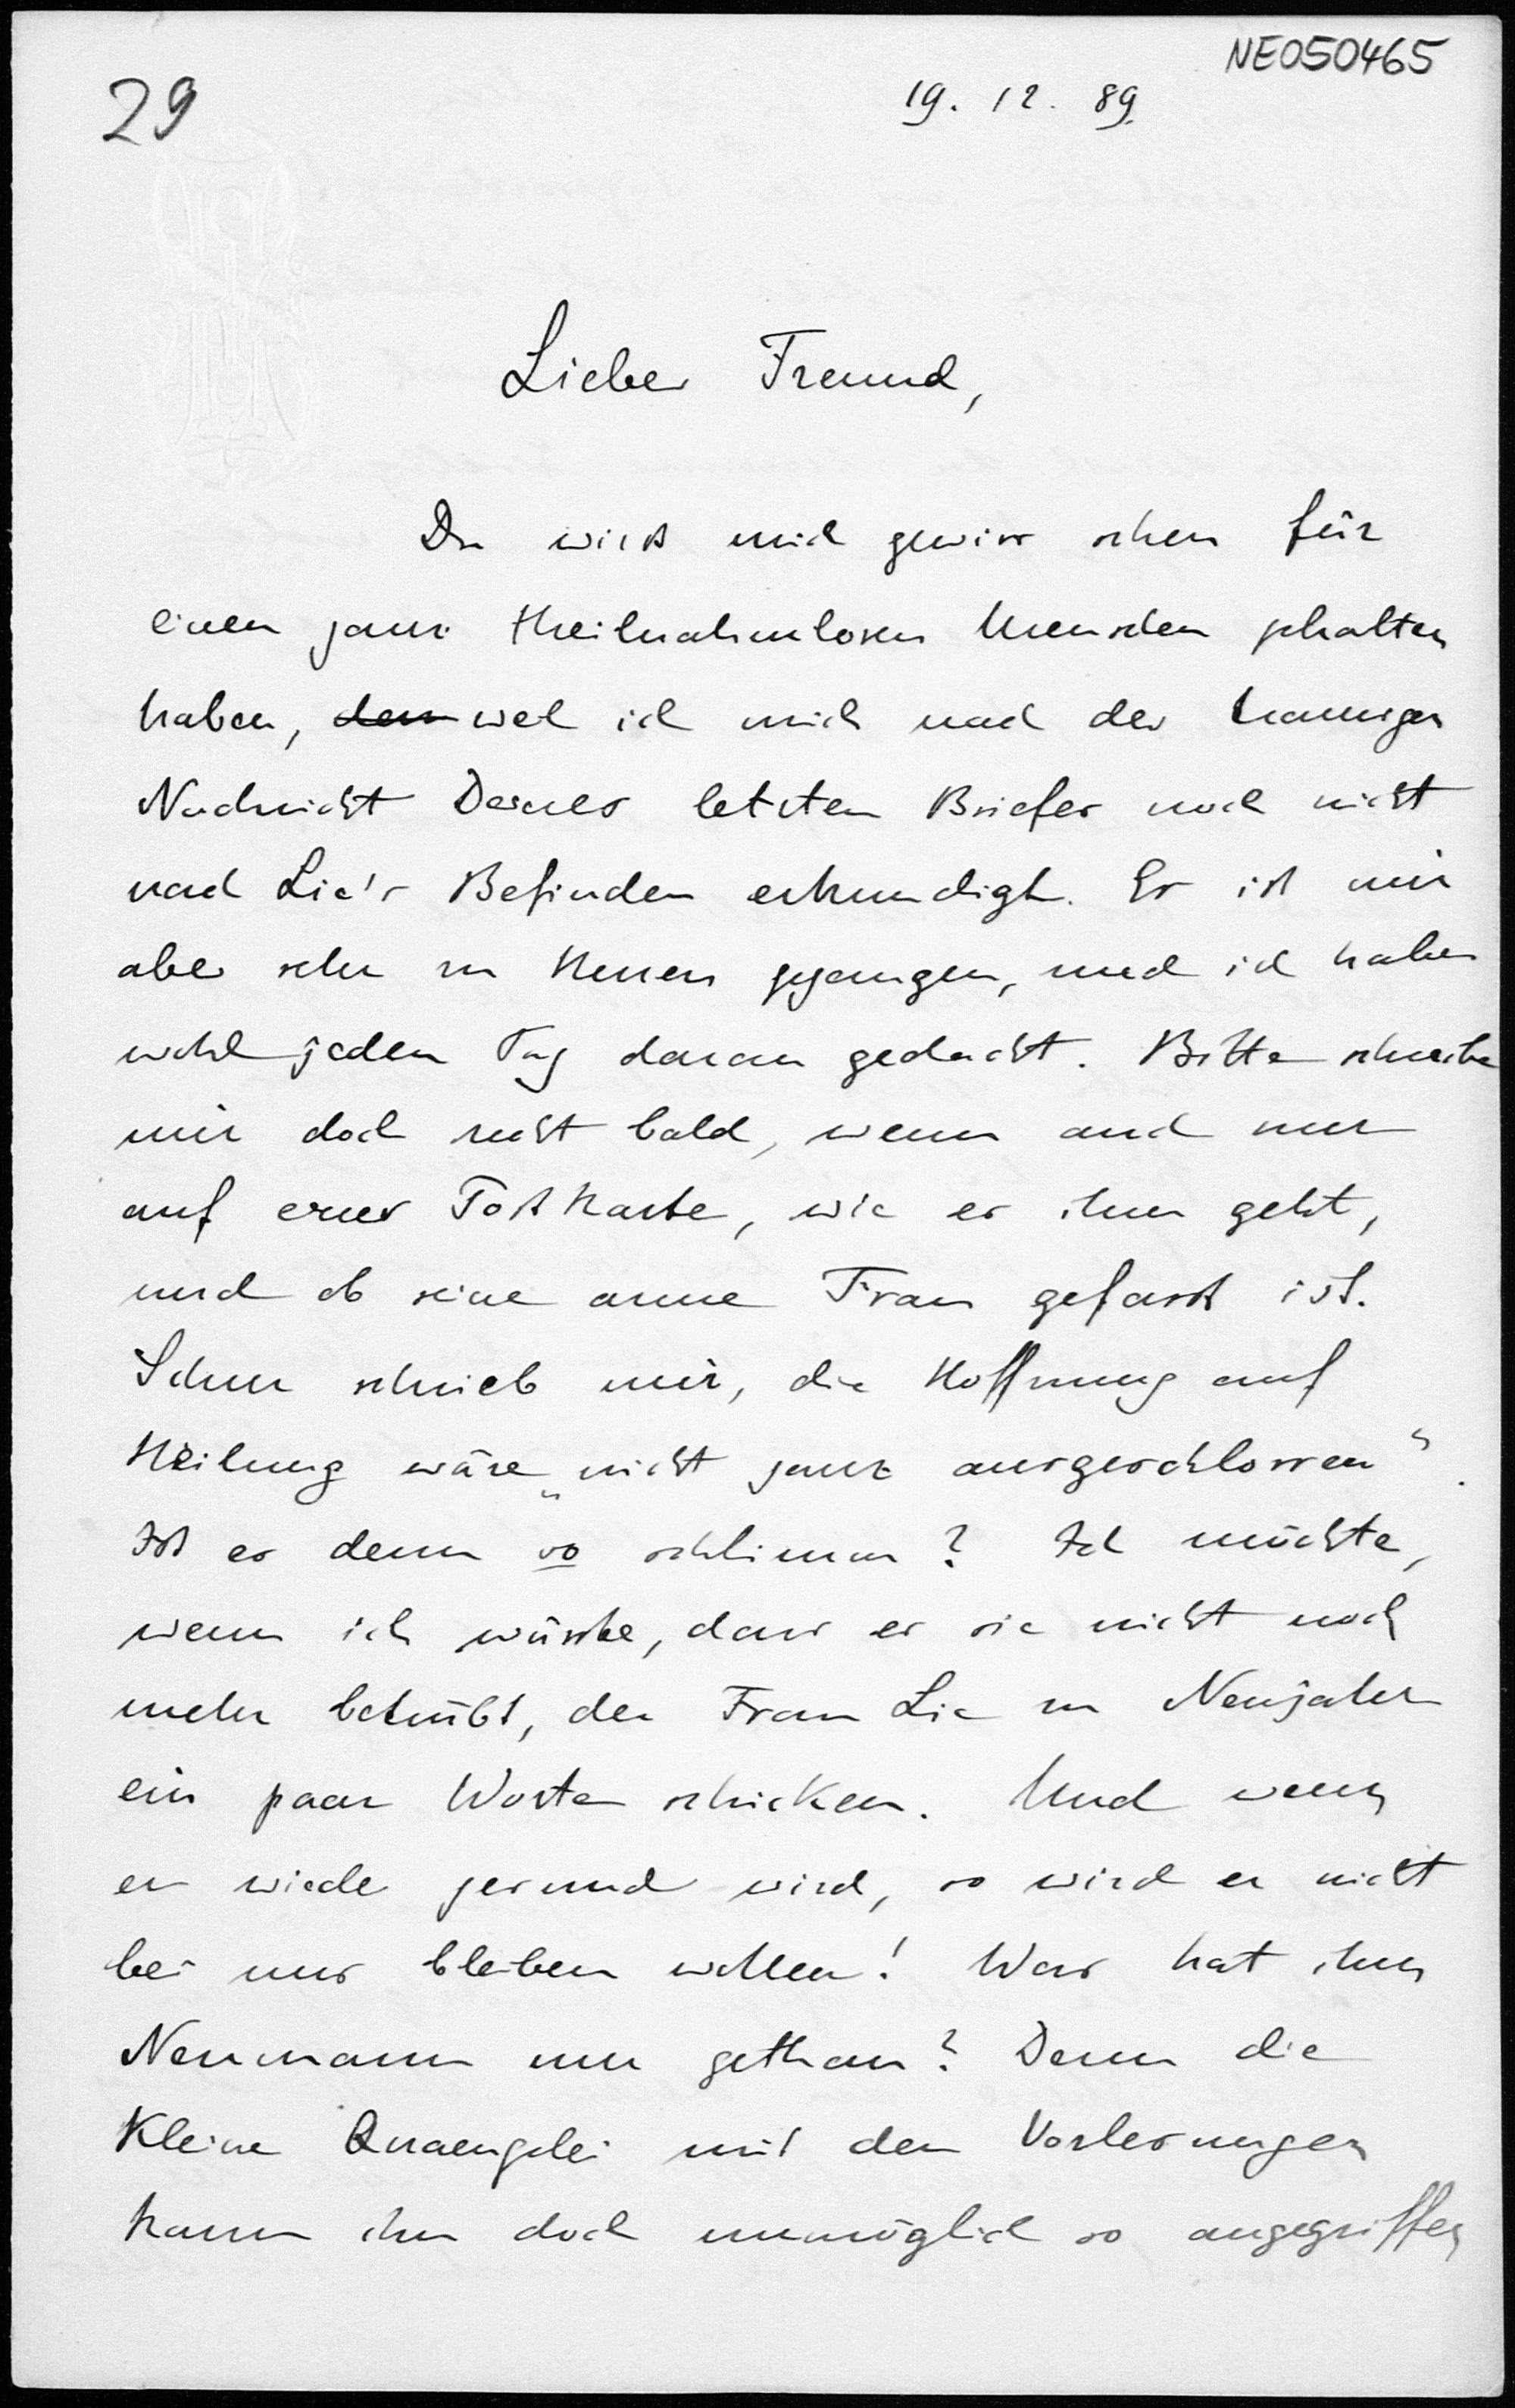 NE050465
29
19. 12. 89.
Lieber Freund,
Du wirst mich gewiss schon für
einen ganz theilnahmlosen Menschen gehalten
haben, dem weil ich mich nach der traurigen
Nachricht Deines letzten Briefes noch nicht
nach Lie's Befinden erkundigt. Es ist mir
aber sehr zu Herzen gegangen, und ich habe
wohl jeden Tag daran gedacht. Bitte schreibe
mir doch recht bald, wenn auch nur
auf einer Postkarte, wie es ihm geht,
und ob seine arme Frau gefasst ist.
Schur schrieb mir, die Hoffnung auf
Heilung wäre „nicht ganz ausgeschlossen“.
Ist es denn so schlimm? Ich möchte,
wenn ich wüsste, dass es sie nicht noch
mehr betrübt, der Frau Lie zu Neujahr
ein paar Worte schicken. Und wenn
er wieder gesund wird, so wird er nicht
bei uns bleiben wollen! Was hat ihm
Neumann nur gethan? Denn die
kleine Quaengelei mit den Vorlesungen
kann ihn doch unmöglich so angegriffen